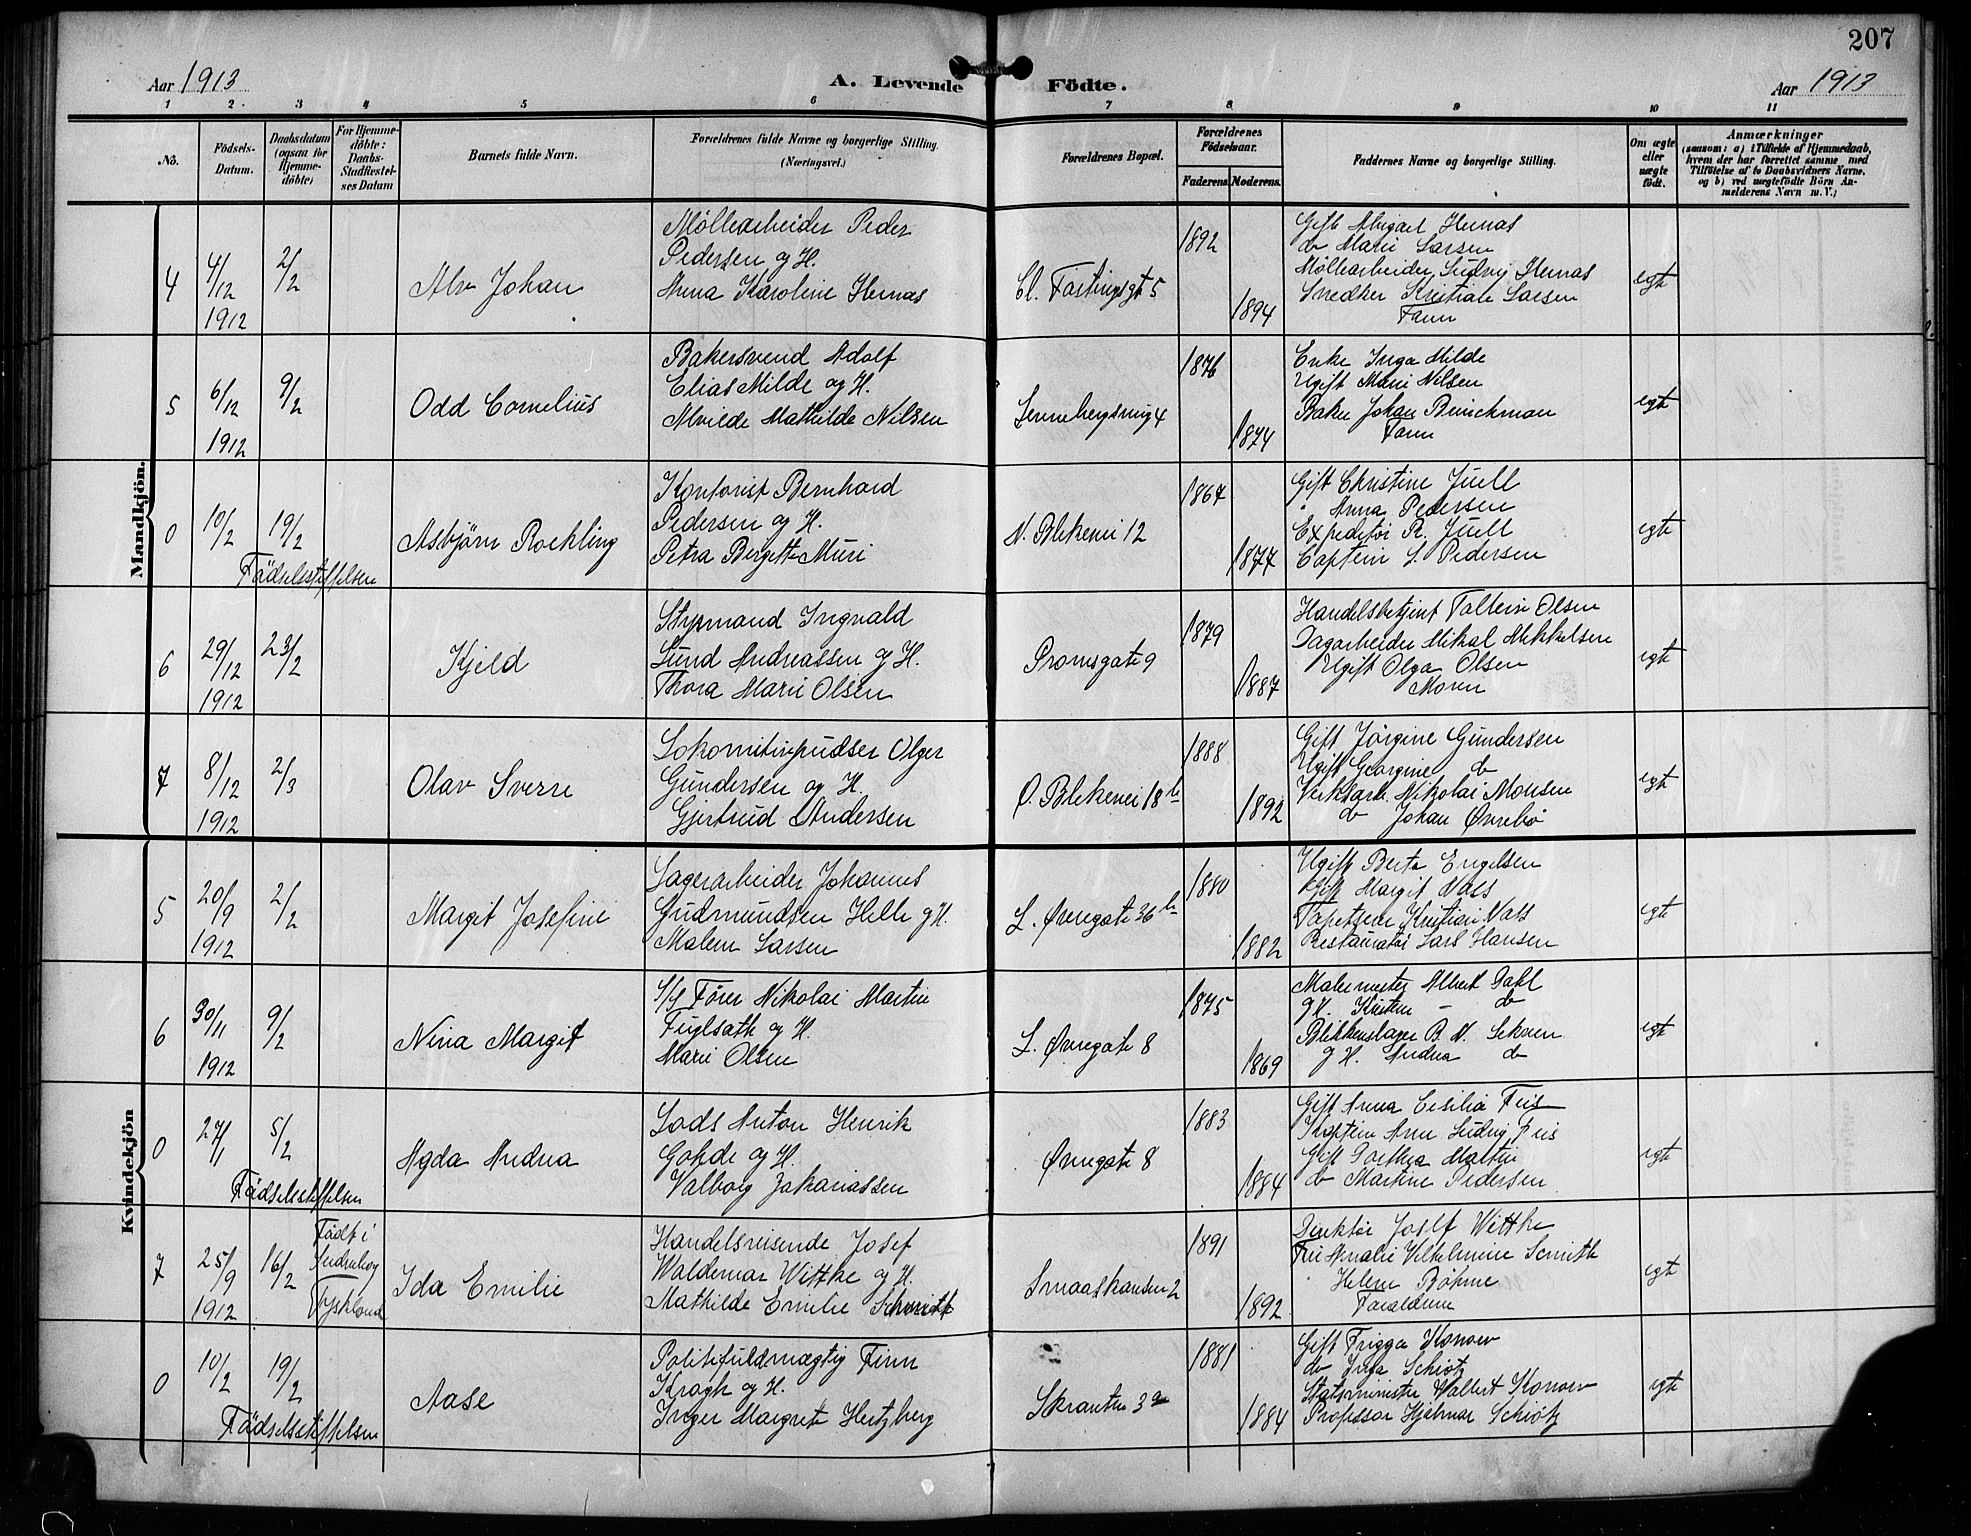 207
Aar 1913
A. Levende Födte.
Aar 1913
1 2. 3 4 5 6 7 8 9 10 11
No.
Födsels-Datum.
Daabsdatum (ogsaa for Hjemme-döbte)
For Hjemme-döbte: Daabs-Stadfæstel-ses Datum
Barnets fulde Navn.
Forældrenes fulde Navne og borgerlige Stilling. (Næringsvei.)
Forældrenes Bopæl.
Forældrenes Födselsaar.
Faderens. Moderens.
Faddernes Navne og borgerlige Stilling.
Om ægte eller uægte födt.
Anmærkninger
(saasom: a) i Tilfælde af Hjemmedaab,
hvem der har forrettet samme med
Tilföielse af to Daabsvidners Navne.
og b) ved uægtefödte Börn An-
melderens Navn m. V.;
Mandkjön.
4
4/12 1912
2/2
Alv Johan
Møllearbeider Peder
Pedersen og H.
Anna Karoline Hernas
Cl. Fastingsgt 5
1892
1894
Gift Abigael Hernas
do Marie Larsen
Møllearbeider Ludvig Hernas
Snedker Kristian Larsen
Faren
egt
5
6/12 1912
9/2
Odd Cornelius
Bakersvend Adolf
Elias Milde og H.
Alvilde Mathilde Nilsen
1876
1874
Enke Inga Milde
Ugift Marie Nilsen
Baker Johan Brinckman
Faren
egt
0
10/2
19/2
Fädselsstiftelsen
Asbjörn Roehling
Kontorist Bernhard
Pedersen og H.
Petra Bergitte Muri
N. Blekevei 12
1867
1877
Gift Christine Juell
" Anna Pedersen
Expeditør R. Juell
Captein S. Pedersen
egt
6
29/12 1912
23/2
Kjeld
Styrmand Ingvald
Lund Andreassen og H.
Thora Marie Olsen
Promsgate 9
1879
1887
Handelsbetjent Tollerin Olsen
Dagarbeider Mikal Mikkelsen
Ugift Olga Olsen
Moren
egt
7
8/12 1912
2/3
Olav Sverre
Lokomitivpudser Olger
Gundersen og H.
Gjertrud Andersen
Ø. Blekevei 18 b
1888
1892
Gift Jörgine Gundersen
Ugift Georgine do
Verksarb. Nikolai Monsen
do Johan Øvrebö
egt
Kvindekjön
5
20/9 1912
2/2
Margit Josefine
Lagerarbeider Johannes
Gudmundsen Helle og H.
Malene Larsen
L. Øvregate 36 b
1880
1882
Ugift Berta Engelsen
Gift Margit Naes
Tapetserer Kristian Naes
Restauratör Carl Hansen
egt
6
30/11 1912
9/2
Nina Margit
S/S Förer Nikolai Martin
Fuglsath og H.
Marie Olsen
L. Øvregate 8
1875
1869
Malermester Albert Dahl
og H. Kirsten — do
Blikkenslager B. N. Seknen
og H. Andrea do
egt
0
27/1
5/2
Fädselsstiftelsen
Agda Andrea
Lods Anton Henrik
Gokde og H.
Valborg Zakariassen
Øvregate 8
1883
1884
Gift Anna Cesilia Friis
Kaptein Arne Ludvig Friis
Gift Dorthea Martin
do Martine Pedersen
egt
7
25/9 1912
16/2
Födt i
Tyskland
Ida Emilie
Handelsreisende Josef
Waldemar Wittke og H.
Mathilde Emilie Schmidt
Smaaskansen 2
1891
1892
Direktör Josef Wittke
Fru Amalie Vilhelmine Schmith
Helene Böhme
Forældrene
egt
0
10/2
19/2
Fädselsstiftelsen
Aase
Politifuldmægtig Finn
Kragh og H.
Inger Margrete Hertzberg
Skranten 3a
1881
1884
Gift Frigga Konow
do Inga Schiøtz
Statsminister Wollert Konow
Professor Hjalmar Schiøtz
egt